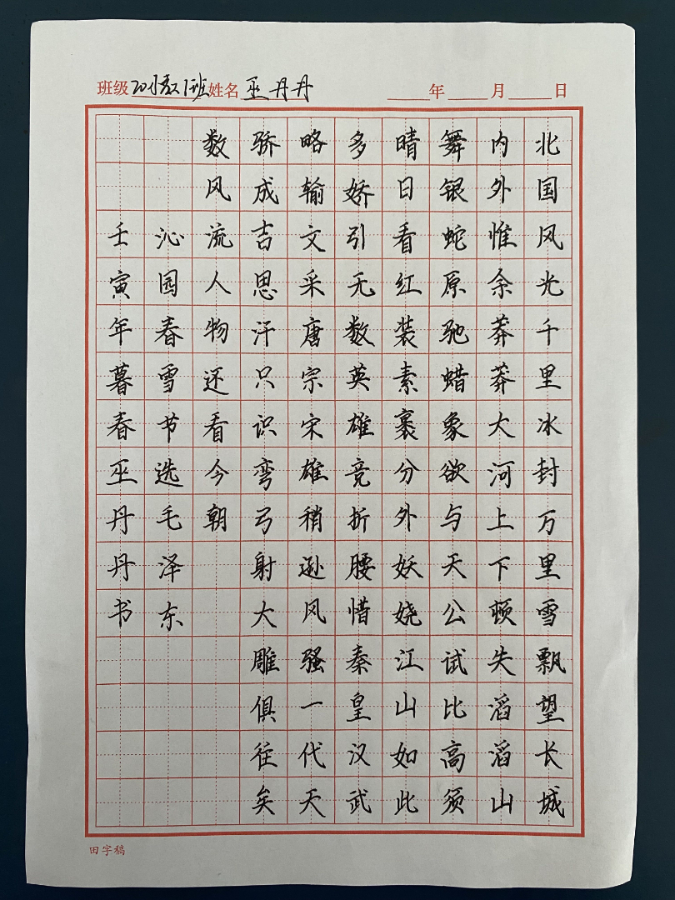 班级20小教1班姓名巫丹丹 年 月 日
北国风光千里冰封万里雪飘望长城
内外惟余莽莽大河上下顿失滔滔山
舞银蛇原驰蜡象欲与天公试比高须
晴日看红装素裹分外妖娆江山如此
多娇引无数英雄竞折腰惜秦皇汉武
略输文采唐宗宋雄稍逊风骚一代天
骄成吉思汗只识弯弓射大雕俱往矣
数风流人物还看今朝
沁园春雪节选毛泽东
壬寅年暮春巫丹丹书
田字稿